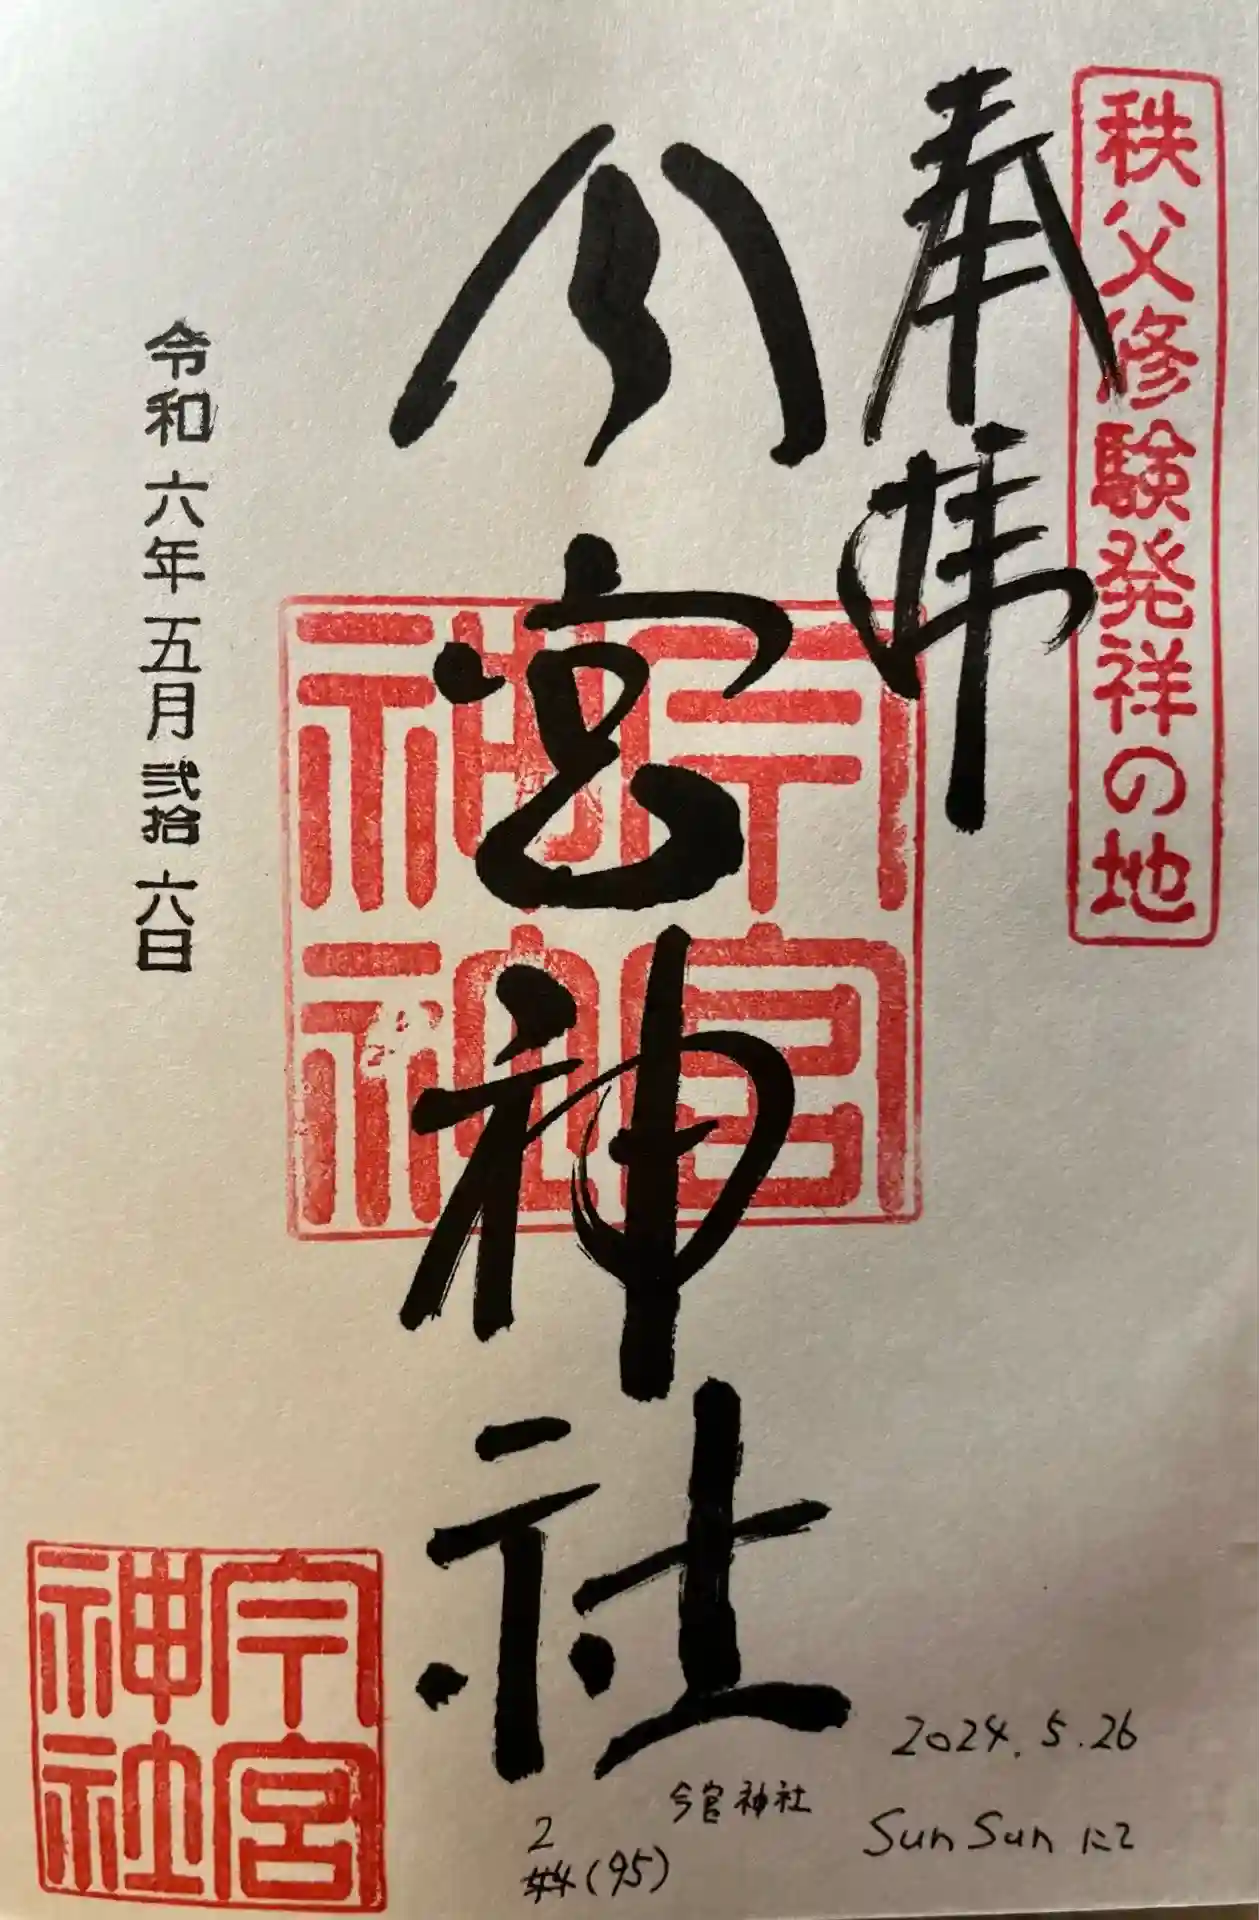 秩父修験発祥の地
奉拝
今宮神社
今宮神社
令和六年五月弐拾六日
今宮神社
2024.5.26
今宮神社
SunSunにて
2
(95)